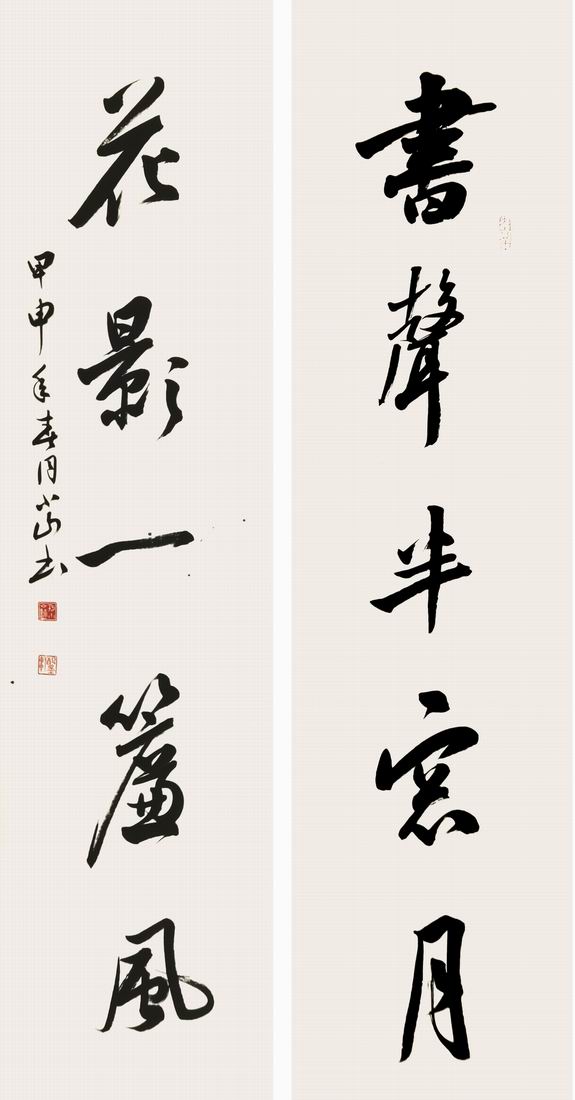 書聲半窓月
花影一簾風
甲申年春月